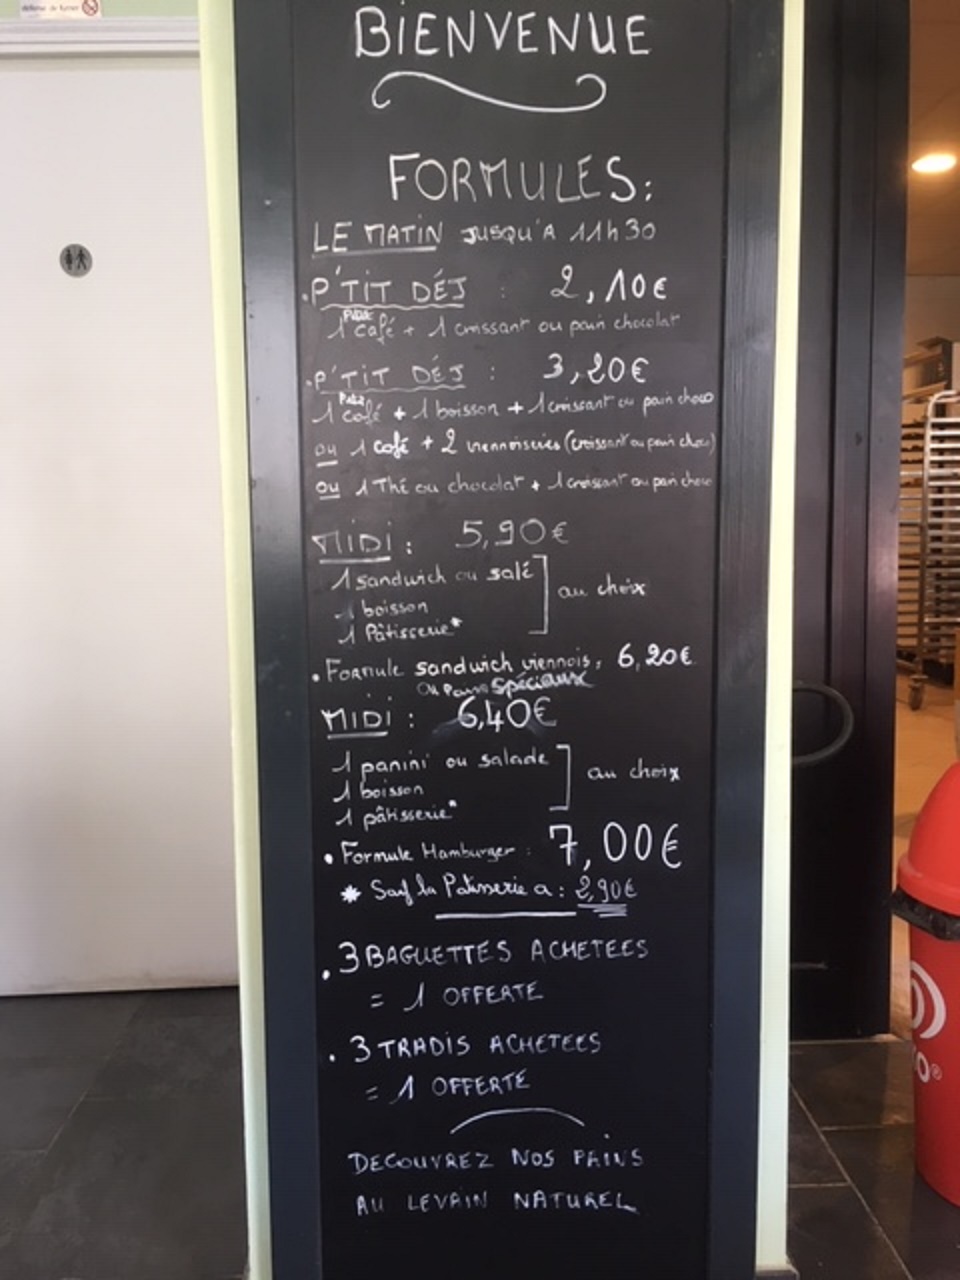 défense de fumer
BIENVENUE
FORMULES:
LE MATIN JUSQU'A 11h30
. P'TIT DÉJ : 2,10€
Petit
1 café + 1 croissant ou pain chocolat
. P'TIT DÉJ : 3,20€
Petit
1 café + 1 boisson + 1 croissant ou pain choco
ou 1 café + 2 viennoiseries (croissant ou pain choco)
ou 1 Thé ou chocolat + 1 croissant ou pain choco
MIDI : 5,90€
1 sandwich ou salé
1 boisson
au choix
1 Pâtisserie*
. FORMULE sandwich viennois, 6,20€
ou Pains Spéciaux
MIDI : 6,40€
1 panini ou salade
1 boisson
au choix
1 pâtisserie*
• Formule Hamburger : 7,00€
* Sauf la Patisserie a : 2,90€
. 3 BAGUETTES ACHETEES
= 1 OFFERTE
. 3 TRADIS ACHETEES
= 1 OFFERTE
DECOUVREZ NOS PAINS
AU LEVAIN NATUREL